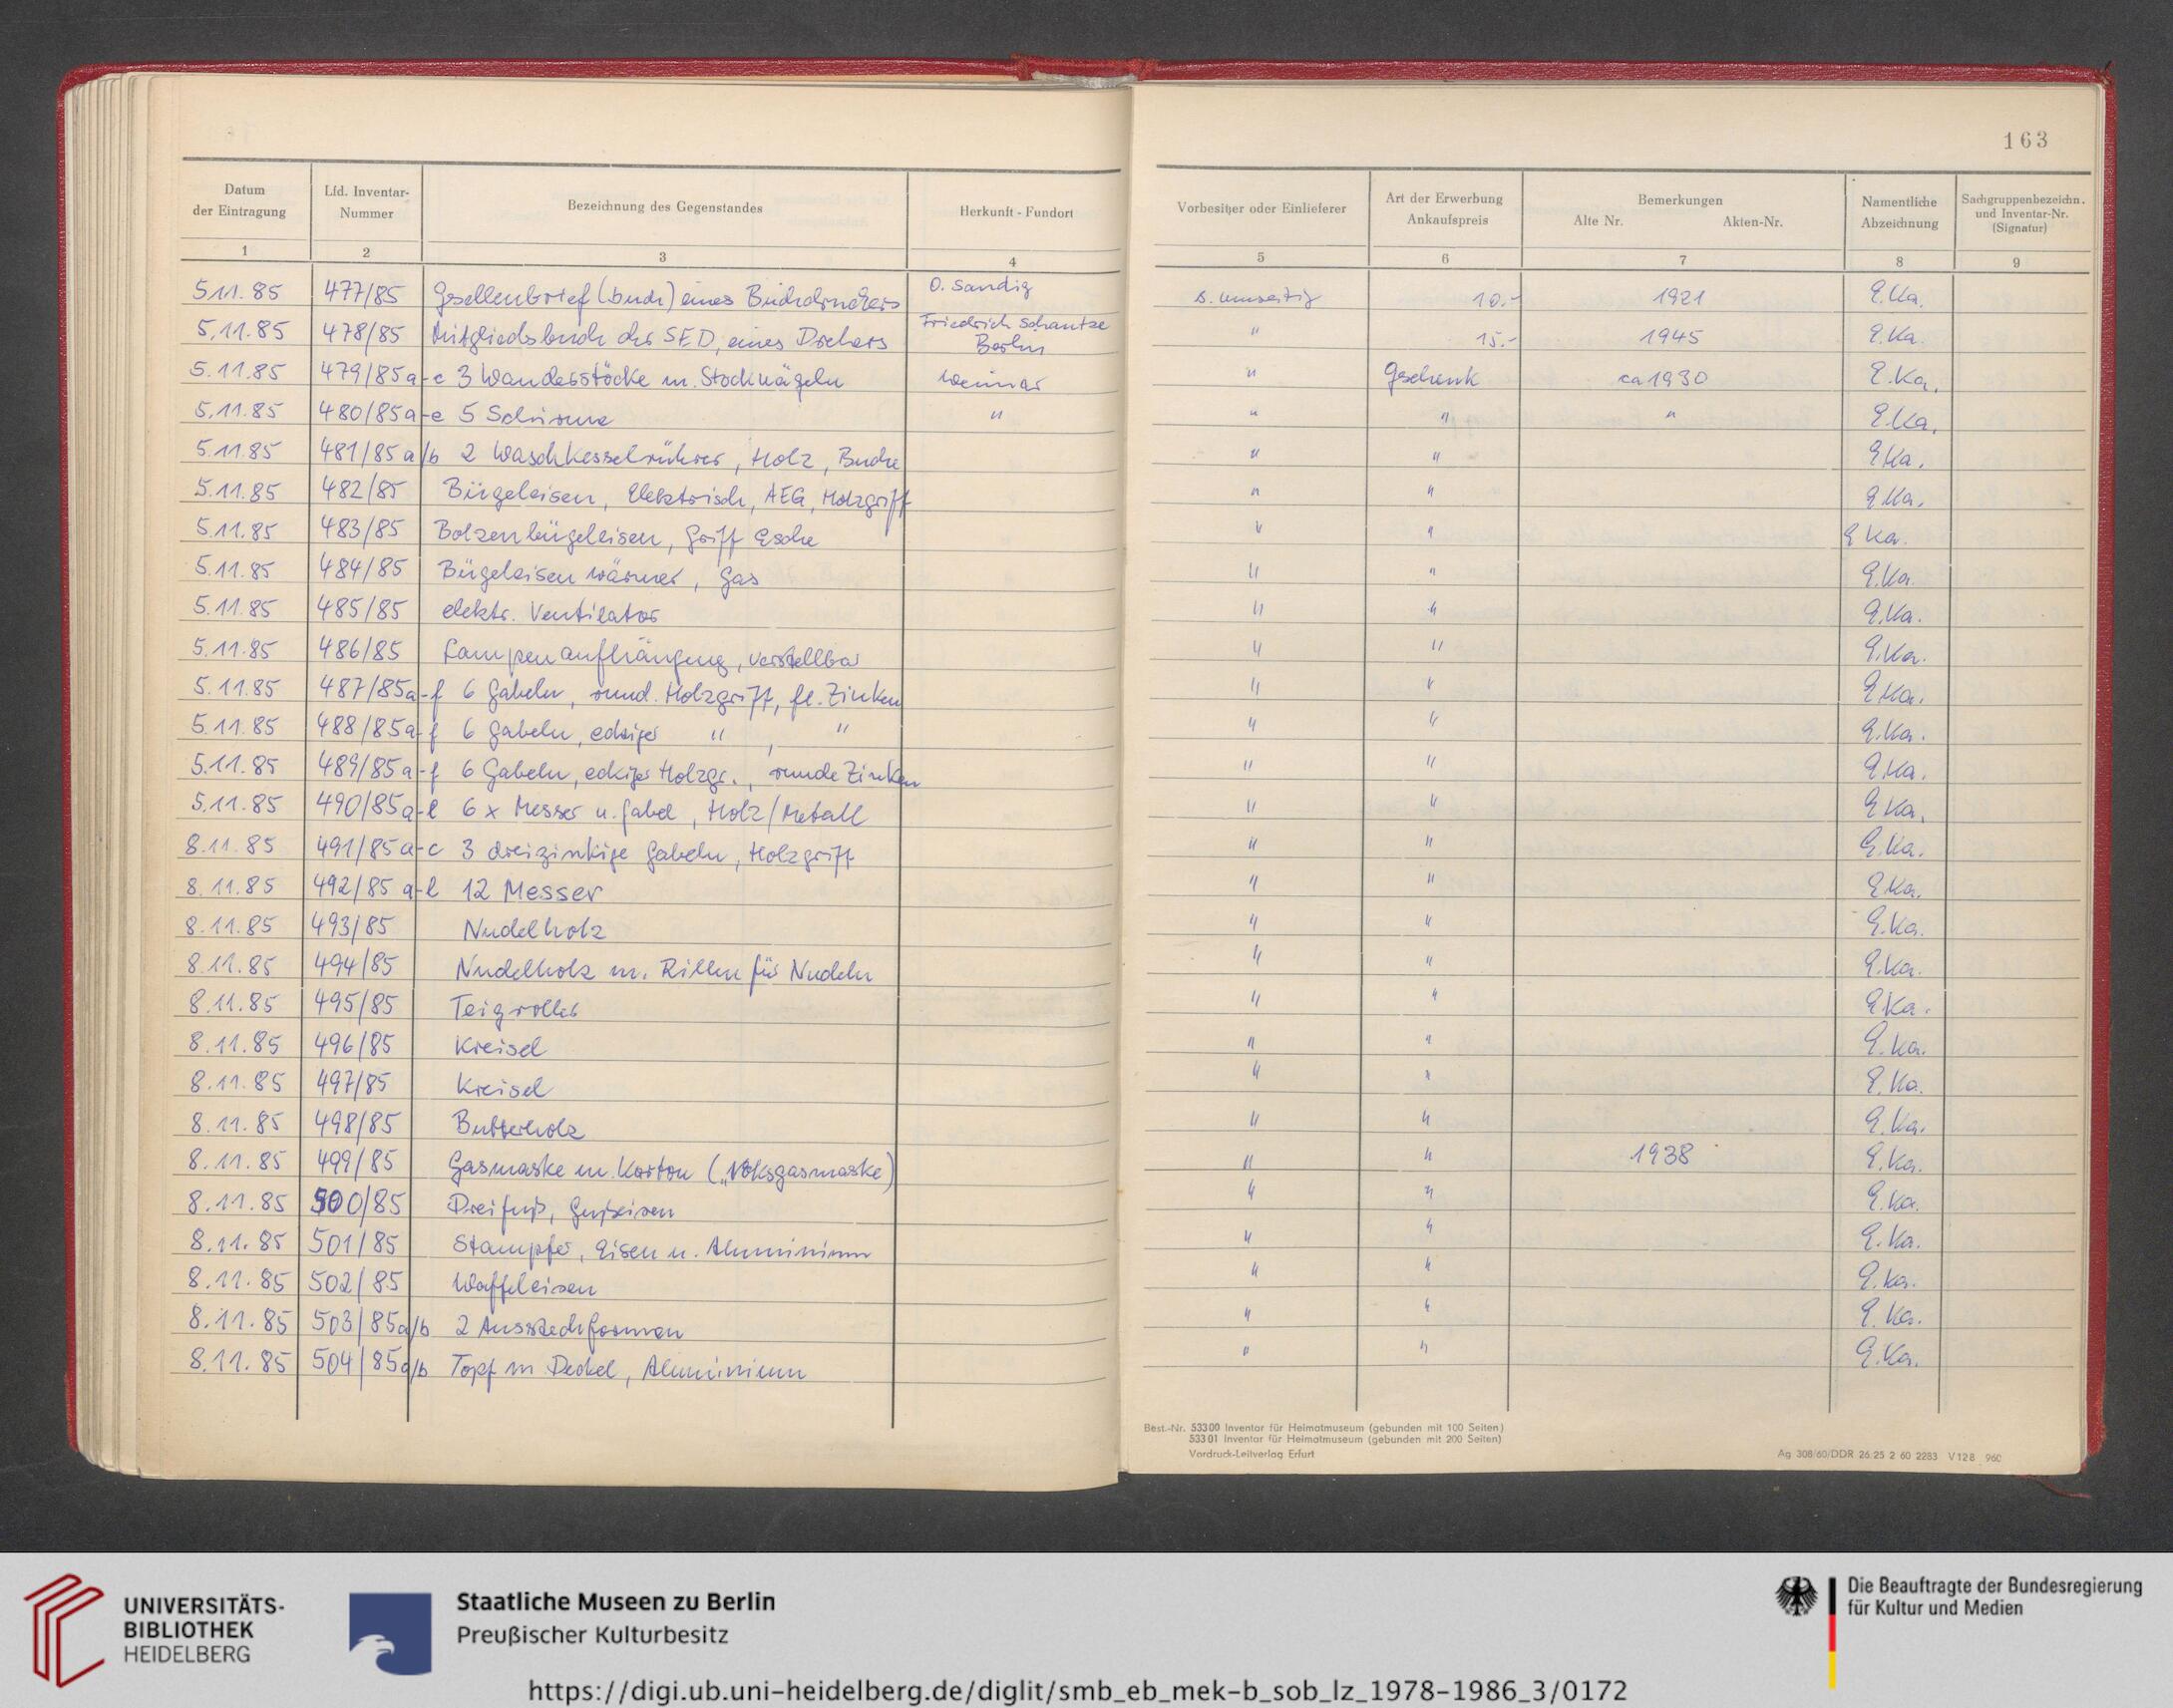 163
Datum der Eintragung | Lfd. Inventar-Nummer | Bezeichnung des Gegenstandes | Herkunft - Fundort | Vorbesitzer oder Einlieferer | Art der Erwerbung Ankaufspreis | Bemerkungen Alte Nr. Akten-Nr. | Namentliche Abzeichnung | Sachgruppenbezeichn. und Inventar-Nr. (Signatur)
1 | 2 | 3 | 4 | 5 | 6 | 7 | 8 | 9
5.11.85 | 477/85 | Gesellenbrief (buch) eines Buchdruckers | O. Sandig | s. umseitig | 10.- | 1921 | E.Ka.
5.11.85 | 478/85 | Mitgliedsbuch der SED, eines Drehers | Friedrich Schantze Berlin | " | 15.- | 1945 | E.Ka.
5.11.85 | 479/85a-c | 3 Wanderstöcke m. Stocknägeln | Weimar | " | Geschenk | ca 1930 | E.Ka.
5.11.85 | 480/85a-e | 5 Schirme | " | " | " | " | E.Ka.
5.11.85 | 481/85a/b | 2 Waschkesselrührer, Holz, Buche | | " | " | | E.Ka.
5.11.85 | 482/85 | Bügeleisen, Elektrisch, AEG, Holzgriff | | " | " | | E.Ka.
5.11.85 | 483/85 | Bolzenbügeleisen, Griff Esche | | " | " | | E Ka.
5.11.85 | 484/85 | Bügeleisenwärmer, Gas | | " | " | | E.Ka.
5.11.85 | 485/85 | elektr. Ventilator | | " | " | | E.Ka.
5.11.85 | 486/85 | Lampenaufhängung, verstellbar | | " | " | | E.Ka.
5.11.85 | 487/85a-f | 6 Gabeln, rund. Holzgriff, fl. Zinken | | " | " | | E.Ka.
5.11.85 | 488/85a-f | 6 Gabeln, eckiger " , " | | " | " | | E.Ka.
5.11.85 | 489/85a-f | 6 Gabeln, eckiger Holzgr., runde Zinken | | " | " | | E.Ka.
5.11.85 | 490/85a-l | 6 x Messer u. Gabel, Holz/Metall | | " | " | | E Ka.
8.11.85 | 491/85a-c | 3 dreizinkige Gabeln, Holzgriff | | " | " | | E.Ka.
8.11.85 | 492/85 a-l | 12 Messer | | " | " | | E Ka.
8.11.85 | 493/85 | Nudelholz | | " | " | | E.Ka.
8.11.85 | 494/85 | Nudelholz m. Rillen für Nudeln | | " | " | | E.Ka.
8.11.85 | 495/85 | Teigroller | | " | " | | E.Ka.
8.11.85 | 496/85 | Kreisel | | " | " | | E.Ka.
8.11.85 | 497/85 | Kreisel | | " | " | | E.Ka.
8.11.85 | 498/85 | Butterholz | | " | " | | E.Ka.
8.11.85 | 499/85 | Gasmaske m. Karton („Volksgasmaske) | | " | " | 1938 | E.Ka.
8.11.85 | 500/85 | Dreifuß, Gußeisen | | " | " | | E.Ka.
8.11.85 | 501/85 | Stampfer, Eisen u. Aluminium | | " | " | | E.Ka.
8.11.85 | 502/85 | Waffeleisen | | " | " | | E.Ka.
8.11.85 | 503/85a/b | 2 Ausstechformen | | " | " | | E.Ka.
8.11.85 | 504/85a/b | Topf m Deckel, Aluminium | | " | " | | E.Ka.
Best.-Nr. 53300 Inventar für Heimatmuseum (gebunden mit 100 Seiten)
53301 Inventar für Heimatmuseum (gebunden mit 200 Seiten)
Vordruck-Leitverlag Erfurt
Ag 308/60/DDR 26 25 2 60 2283 V128 960
UNIVERSITÄTS-
BIBLIOTHEK
HEIDELBERG
Staatliche Museen zu Berlin
Preußischer Kulturbesitz
Die Beauftragte der Bundesregierung
für Kultur und Medien
https://digi.ub.uni-heidelberg.de/diglit/smb_eb_mek-b_sob_lz_1978-1986_3/0172